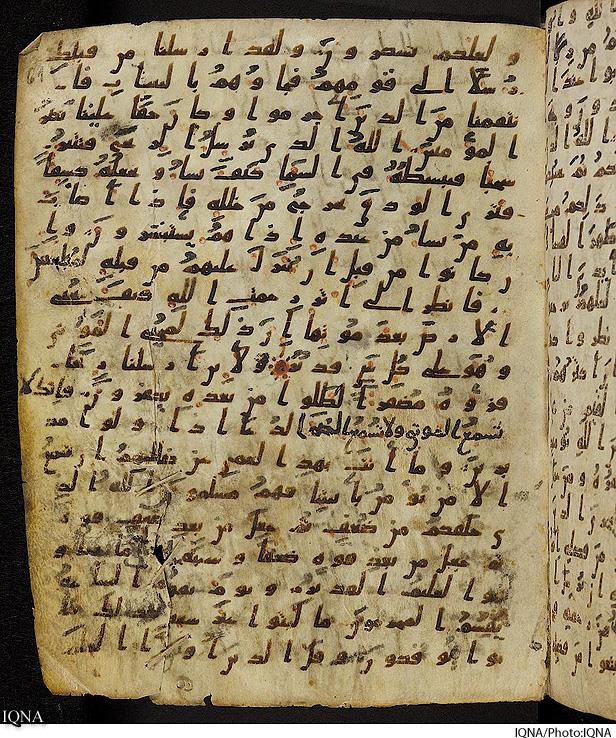 و لعلكم تشكرون ولقد ارسلنا من قبلك
رسلا الى قومهم فجاوهم بالبينت فا
نتقمنا من الذين اجرموا وكان حقا علينا نصر
المومنين الله الذي يرسل الريح فتثير
سحبا فيبسطه في السما كيف يشا ويجعله كسفا
فترى الودق يخرج من خلله فاذا اصاب
به من يشا من عبده اذا هم يستبشرون وا
ن كانوا من قبل ان ينزل عليهم من قبله لمبلسين
فانظر الى اثر رحمت الله كيف يحيي
الارض بعد موتها ان ذلك لمحيي الموتى
وهو على كل شي قدير ولين ارسلنا ريحا
فراوه مصفرا لظلوا من بعده يكفرون فانك لا
تسمع الموتى ولا تسمع الصم الدعا اذا ولوا مد
برين وما انت بهد العمي عن ضللتهم ان تسمع
الا من يومن باينا فهم مسلمون الله الذ
ي خلقكم من ضعف ثم جعل من بعد ضعف قو
ة ثم جعل من بعد قوة ضعفا وشيبة يخلق ما يشا و
هو العليم القدير ويوم تقوم الساعة
يقسم المجرمون ما لبثوا غير ساعة كذلك كا
نوا يوفكون وقال الذين اوتوا العلم
IQNA
IQNA/Photo:IQNA